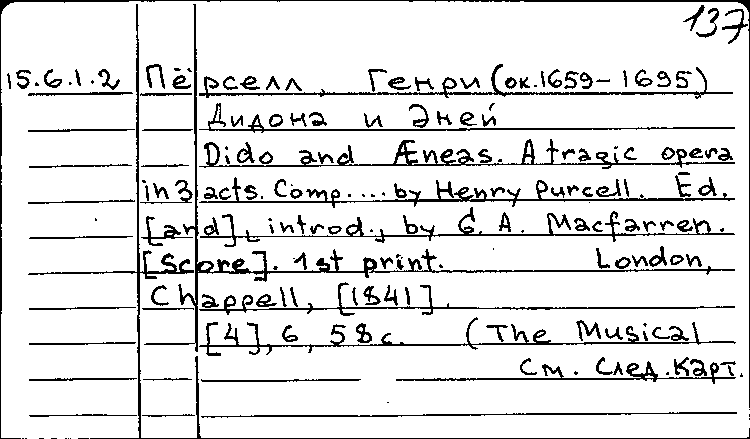 137
15.6.1.2 Пёрселл, Генри (ок.1659-1695)
Дидона и Эней
Dido and Æneas. A tragic opera
in 3 acts. Comp.... by Henry Purcell. Ed.
[and], introd., by G. A. Macfarren.
[Score]. 1st print. London,
Chappell, [1841].
[4], 6, 58 с. (The Musical
См. след. карт.